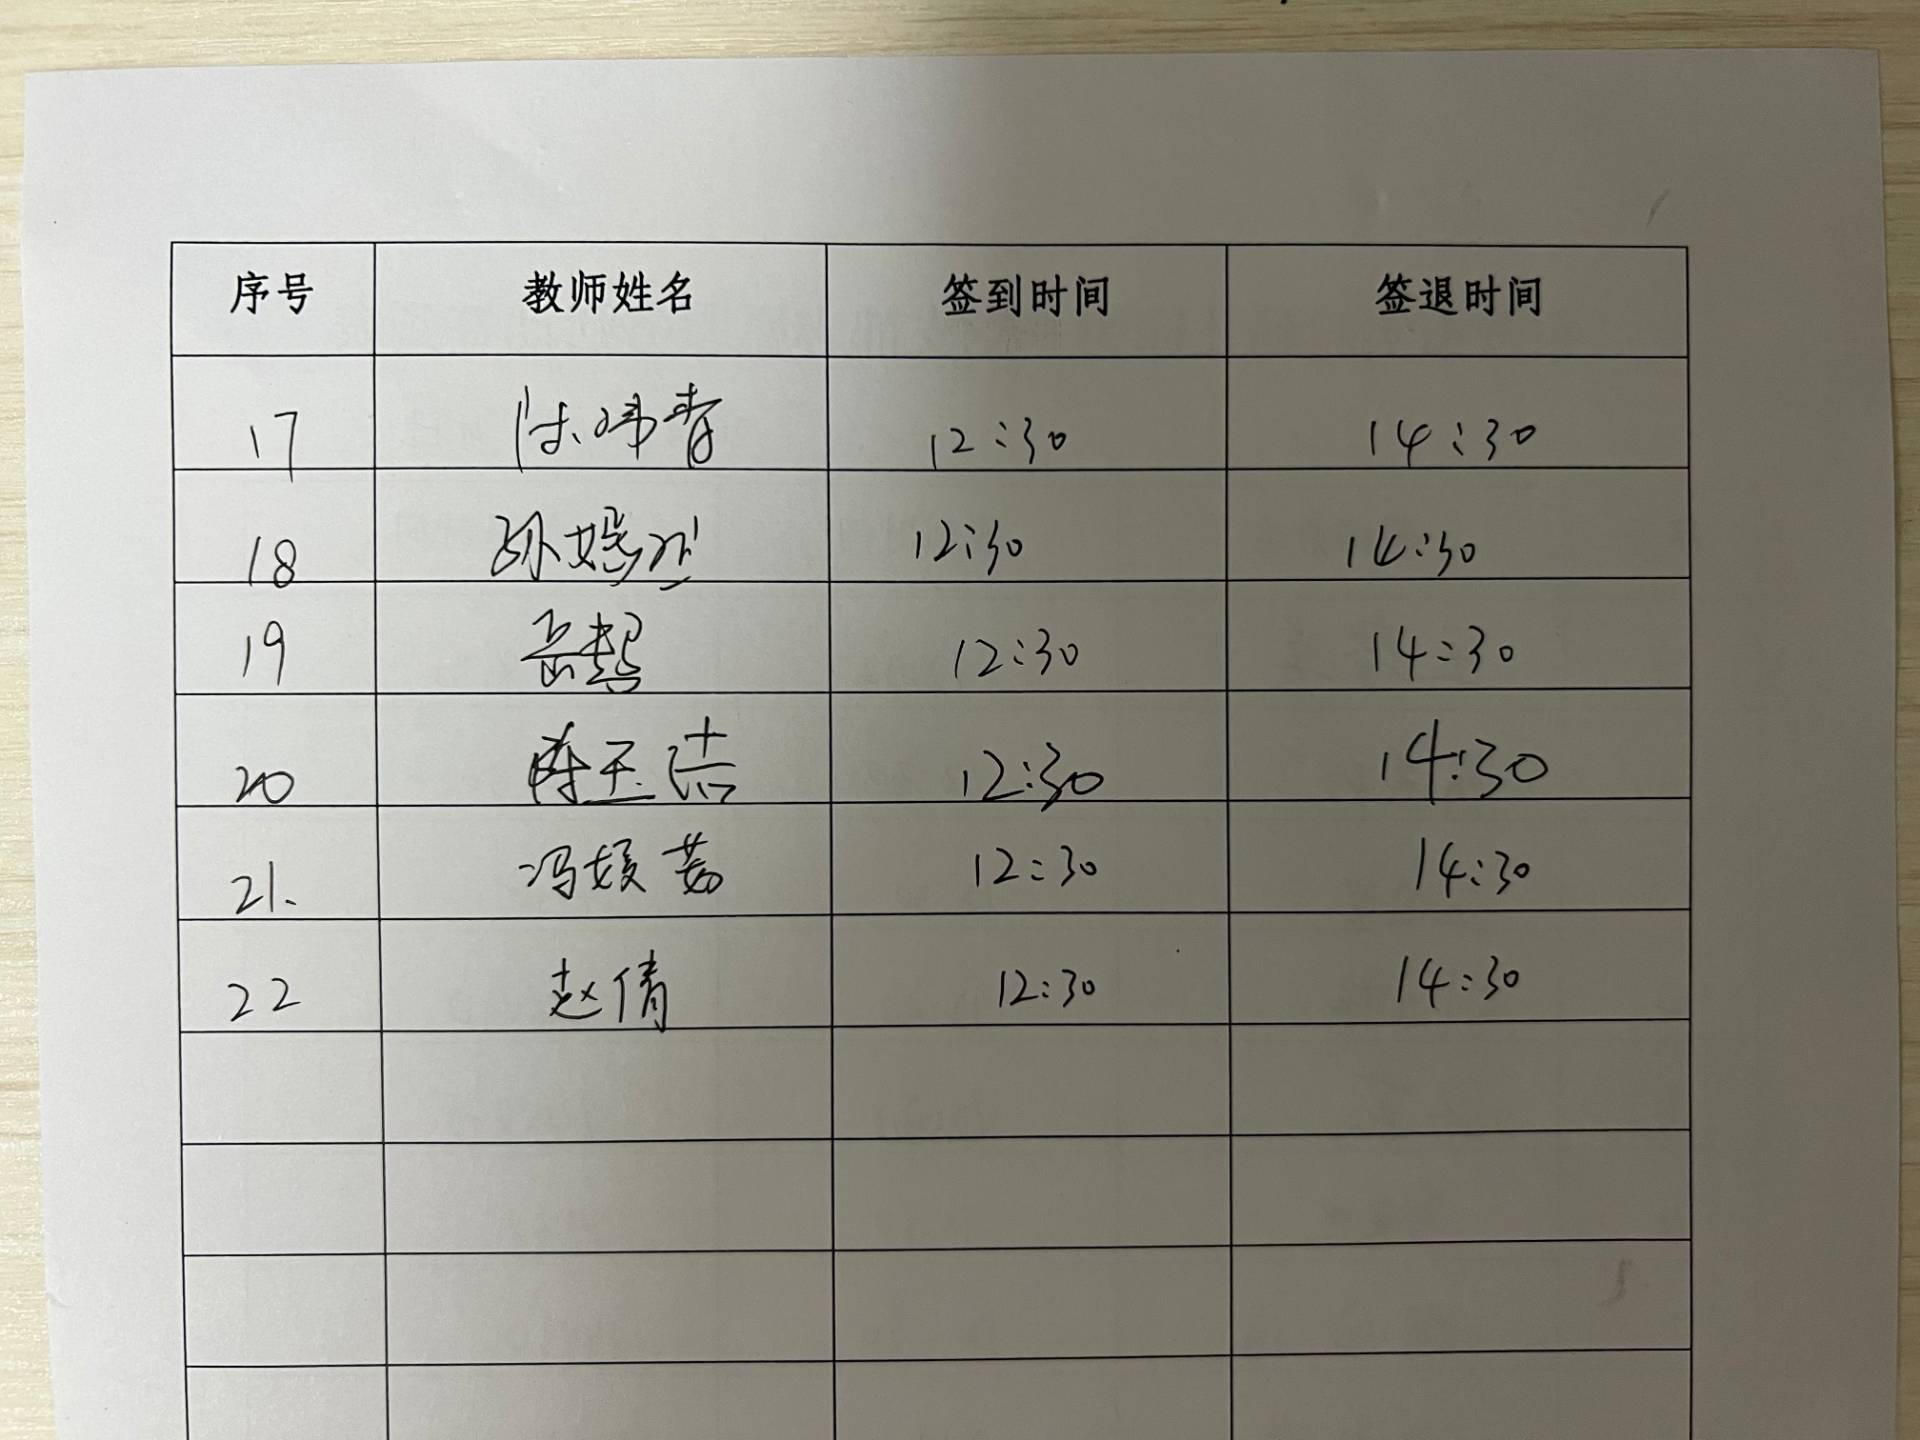 序号 教师姓名 签到时间 签退时间
17 陈玮青 12:30 14:30
18 孙嫣然 12:30 14:30
19 岳喆 12:30 14:30
20 陈玉洁 12:30 14:30
21. 冯媛茹 12:30 14:30
22 赵倩 12:30 14:30